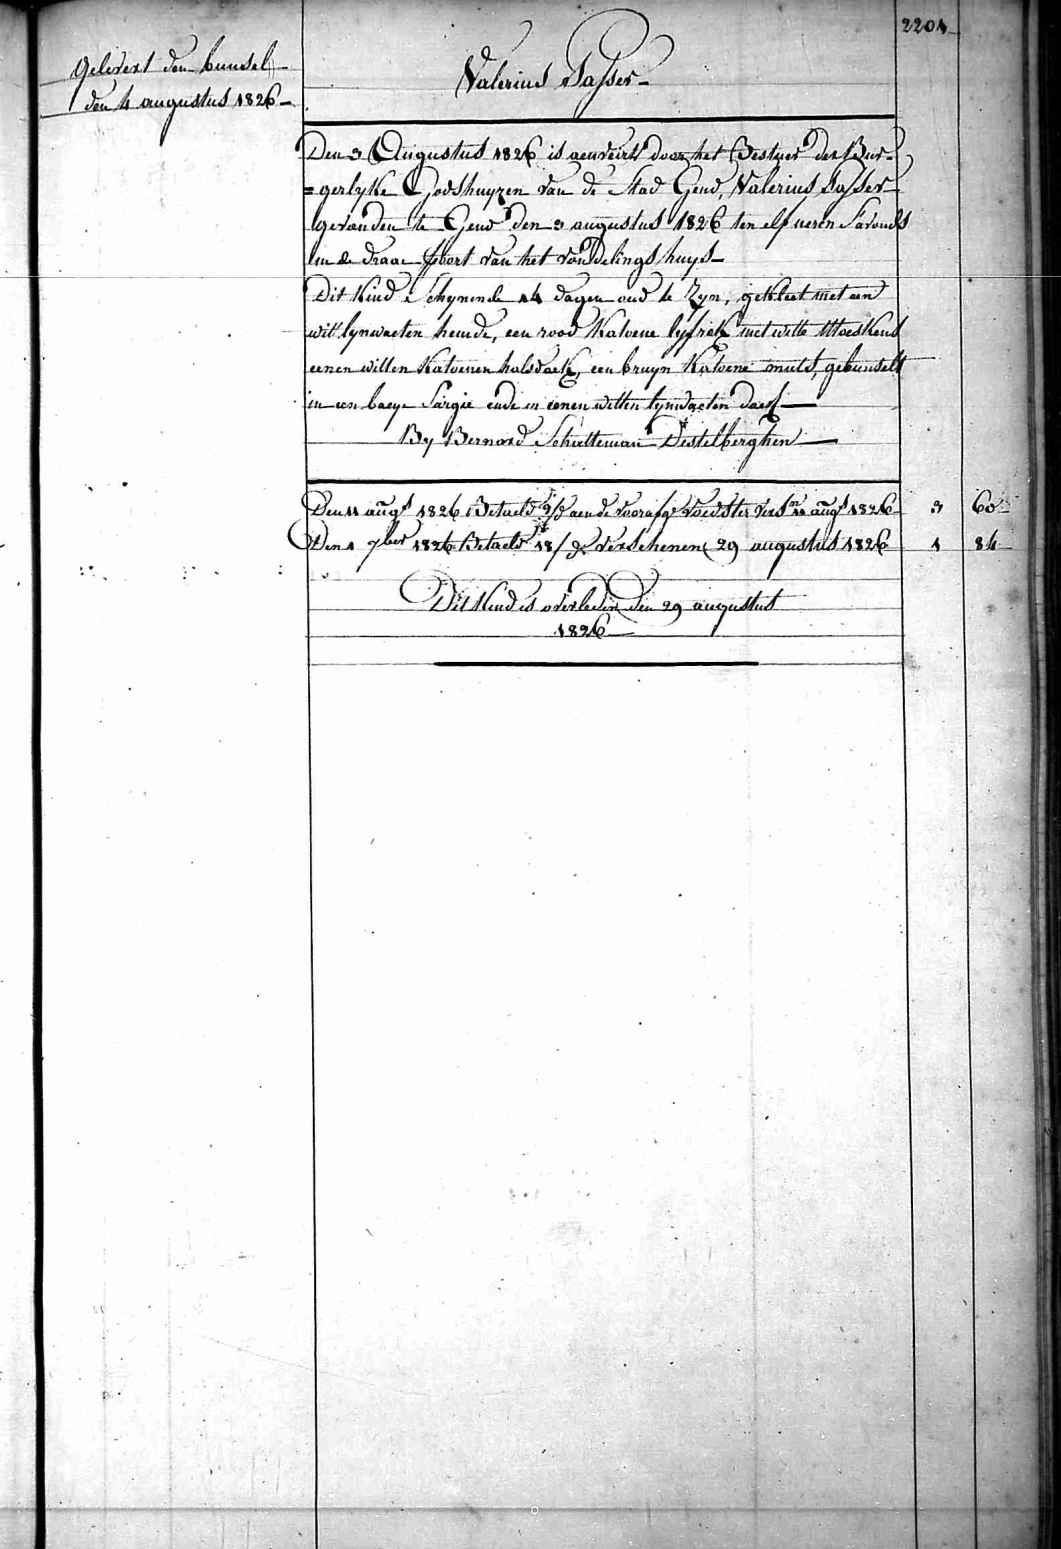 2201
Gelevert den bunsel
den 4 augustus 1826
Valerius Passer
Den 3 Augustus 1826 is aenveirt door het Bestuer der Bur=
=gerlyke Godshuyzen van de Stad Gend, Valerius Passer
gevonden te Gend den 3 augustus 1826 ten elf ueren S'avonds
in de draae poort van het vondelings huys
Dit Kind schynende 14 dagen oud te Zyn, gekleet met een
wit lynwaeten hemde, een rood Katoene lyfrok met witte Moeskens
eenen witten Katoenen halsdoek, een bruyn Katoene muts, gebunselt
in een baeye Sargie ende in eenen witten lynwaeten doek
By Bernard Schutteman Destelberghen
Den 11 augt 1826 Betaeld aen de voorafge voedster vers 11 augt 1826 3 60
Den 1 7ber 1826 Betaeld 18/ verschenen 29 augustus 1826 1 84
Dit Kind is overleden den 29 augustus
1826